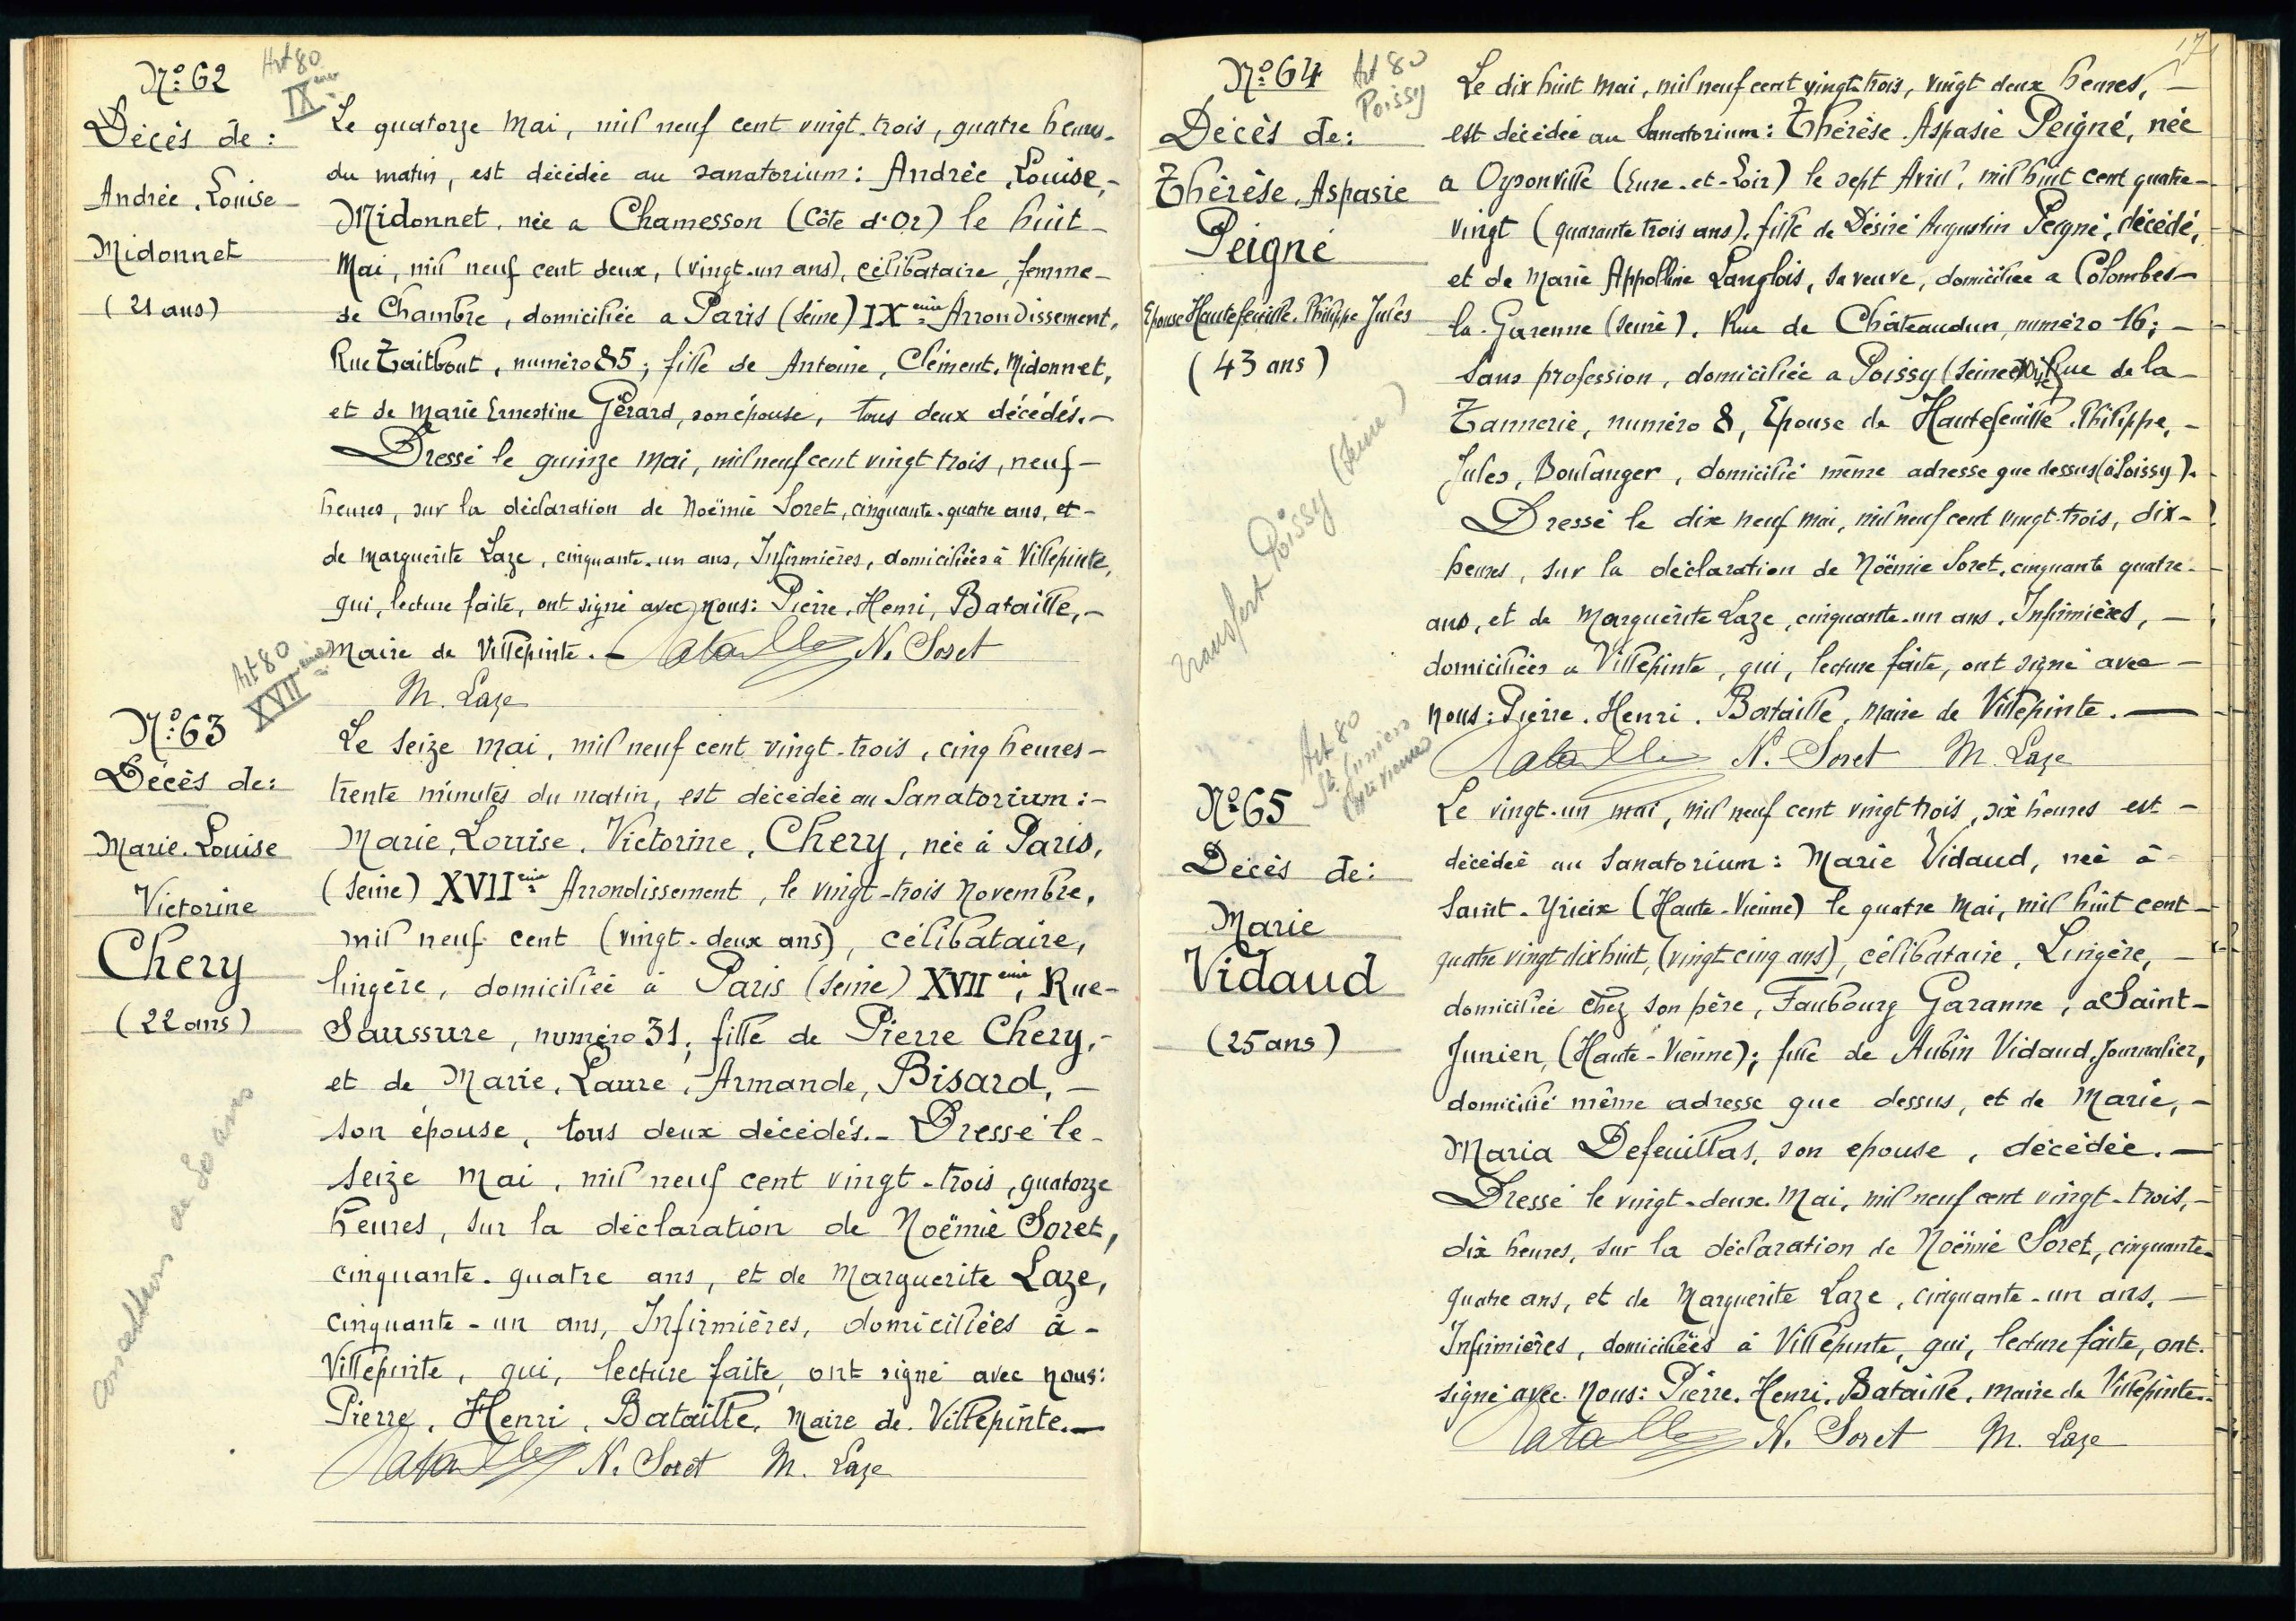 Nº 62
Art 80
IXème
Décès de :
Andrée, Louise
Midonnet
(21 ans)
Le quatorze Mai, mil neuf cent vingt-trois, quatre heures-
du matin, est décédée au sanatorium : Andrée, Louise,-
Midonnet, née a Chamesson (Côte d'Or) le huit-
Mai, mil neuf cent deux, (vingt-un ans), célibataire, femme-
de Chambre, domiciliée a Paris (Seine) IXème Arrondissement,
Rue Taitbout, numéro 85; fille de Antoine, Clément, Midonnet,
et de Marie Ernestine Gérard, son épouse, tous deux décédés.-
Dressé le quinze Mai, mil neuf cent vingt trois, neuf-
heures, sur la déclaration de Noëmie Soret, cinquante-quatre ans, et-
de Marguerite Laze, cinquante-un ans, Infirmières, domiciliées à Villepinte,
qui, lecture faite, ont signé avec nous: Pierre, Henri, Bataille,-
Maire de Villepinte.- Bataille N. Soret
M. Laze
Art 80
XVIIème
Nº 63
Décès de:
Marie-Louise
Victorine
Chery
(22 ans)
Le seize mai, mil neuf cent vingt-trois, cinq heures-
trente minutes du matin, est décédée au Sanatorium :-
Marie, Louise, Victorine, Chery, née à Paris,
(Seine) XVIIème Arrondissement, le vingt-trois Novembre,
mil neuf cent (vingt-deux ans), célibataire,
lingère, domiciliée à Paris (Seine) XVIIème, Rue-
Saussure, numéro 31; fille de Pierre Chery,-
et de Marie, Laure, Armande, Bisard,-
son épouse, tous deux décédés.- Dressé le-
seize Mai, mil neuf cent vingt-trois, quatorze
heures, sur la déclaration de Noëmie Soret,
cinquante-quatre ans, et de Marguerite Laze,
cinquante-un ans, Infirmières, domiciliées à-
Villepinte, qui, lecture faite, ont signé avec nous:
Pierre, Henri, Bataille, Maire de Villepinte.-
Bataille N. Soret M. Laze
Concession de 30 ans
17
Nº 64
Art 80
Poissy
Décès de:
Thérèse, Aspasie
Peigné
Epouse Hautefeuille, Philippe Jules
(43 ans)
transfert Poissy (Seine)
Le dix huit Mai, mil neuf cent vingt trois, vingt deux heures,-
est décédée au Sanatorium : Thérèse Aspasie Peigné, née
a Oysonville (Eure-et-Loir) le sept Avril, mil huit cent quatre-
vingt (quarante trois ans), fille de Désiré Augustin Peigné, décédé,
et de Marie Appolline Langlois, sa veuve, domiciliée a Colombes-
la-Garenne (Seine), Rue de Châteaudun, numéro 16;-
Sans profession, domiciliée a Poissy (Seine et Oise) Rue de la-
Tannerie, numéro 8, Epouse de Hautefeuille, Philippe,-
Jules, Boulanger, domicilié même adresse que dessus (à Poissy).
Dressé le dix neuf Mai, mil neuf cent vingt-trois, dix-
heures, sur la déclaration de Noëmie Soret, cinquante quatre-
ans, et de Marguerite Laze, cinquante-un ans, Infirmières,-
domiciliées a Villepinte, qui, lecture faite, ont signé avec-
nous: Pierre, Henri, Bataille, Maire de Villepinte.-
Bataille N. Soret M. Laze
Art 80
St Junien
Hte Vienne
Nº 65
Décès de:
Marie
Vidaud
(25 ans)
Le vingt-un mai, mil neuf cent vingt trois, six heures est-
décédée au Sanatorium : Marie Vidaud, née à-
Saint-Yrieix (Haute-Vienne) le quatre Mai, mil huit cent-
quatre vingt dix huit, (vingt cinq ans), célibataire, Lingère,-
domiciliée chez son père, Faubourg Garanne, a Saint-
Junien, (Haute-Vienne); fille de Aubin Vidaud, Journalier,
domicilié même adresse que dessus, et de Marie,-
Maria Defeuillas, son epouse, décédée.-
Dressé le vingt-deux Mai, mil neuf cent vingt-trois,-
dix heures, sur la déclaration de Noëmie Soret, cinquante-
quatre ans, et de Marguerite Laze, cinquante-un ans,-
Infirmières, domiciliées à Villepinte, qui, lecture faite, ont-
signé avec nous: Pierre, Henri, Bataille, Maire de Villepinte.-
Bataille N. Soret M. Laze